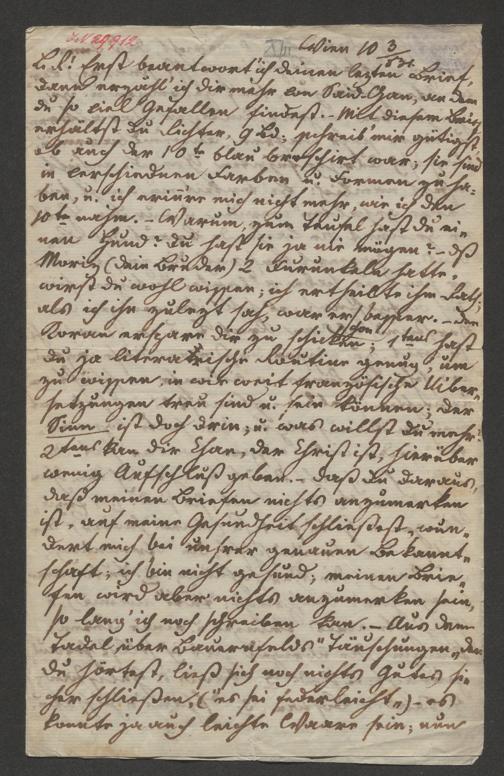 I.N. 29912 XIII Wien 10 3/
L. R.! Erst beantwort' ich deinen lezten Brief,
dann erzähl' ich dir mehr von Said-Chan, an dem
du so viel Gefallen findest. – Mit diesem Brief
erhältst du Lichter, 9 Bd; schreib' mir gütigst
ob auch der 10te blau broschirt war; sie sind
in verschiednen Farben u. Formen zu ha-
ben, u. ich erinn're mich nicht mehr, wie ich den
10ten nahm. – Warum, zum Teufel hast du ei-
nen Hund? Du hast sie ja nie mögen? – Daß
Moriz (dein Bruder) 2 Furunkeln hatte,
wirst du wohl wissen; ich ertheilte ihm Rath;
als ich ihn zulezt sah, war er schon besser. – Den
Koran erspare dir zu schicken; 1stens hast
Du ja literarische Routine genug, um
zu wissen, in wie weit französische Über-
setzungen treu sind u. sein können; der
Sinn ist doch drin; u. was willst du mehr?
2tens kan dir Chan, der Christ ist, hierüber
wenig Aufschluß geben. – Daß Du daraus,
daß meinen Briefen nichts anzumerken
ist, auf meine Gesundheit schließest, wun-
dert mich bei unsrer genauen Bekannt-
schaft; ich bin nicht gesund; meinen Brie-
fen wird aber nichts anzumerken sein,
so lang' ich noch schreiben kan. – Aus dem
Tadel über Bauernfelds "Täuschungen", den
du hörtest, ließ sich noch nichts Gutes si-
cher schließen, ("es sei federleicht") – es
konnte ja auch leichte Waare sein; nun